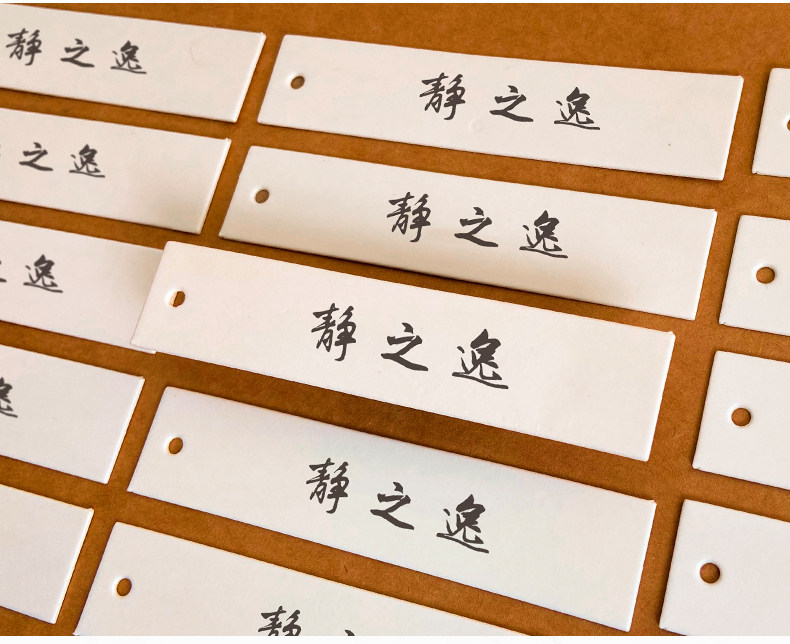 静之逸
静之逸
之逸
静之逸
逸
静之逸
逸
静之逸
静之